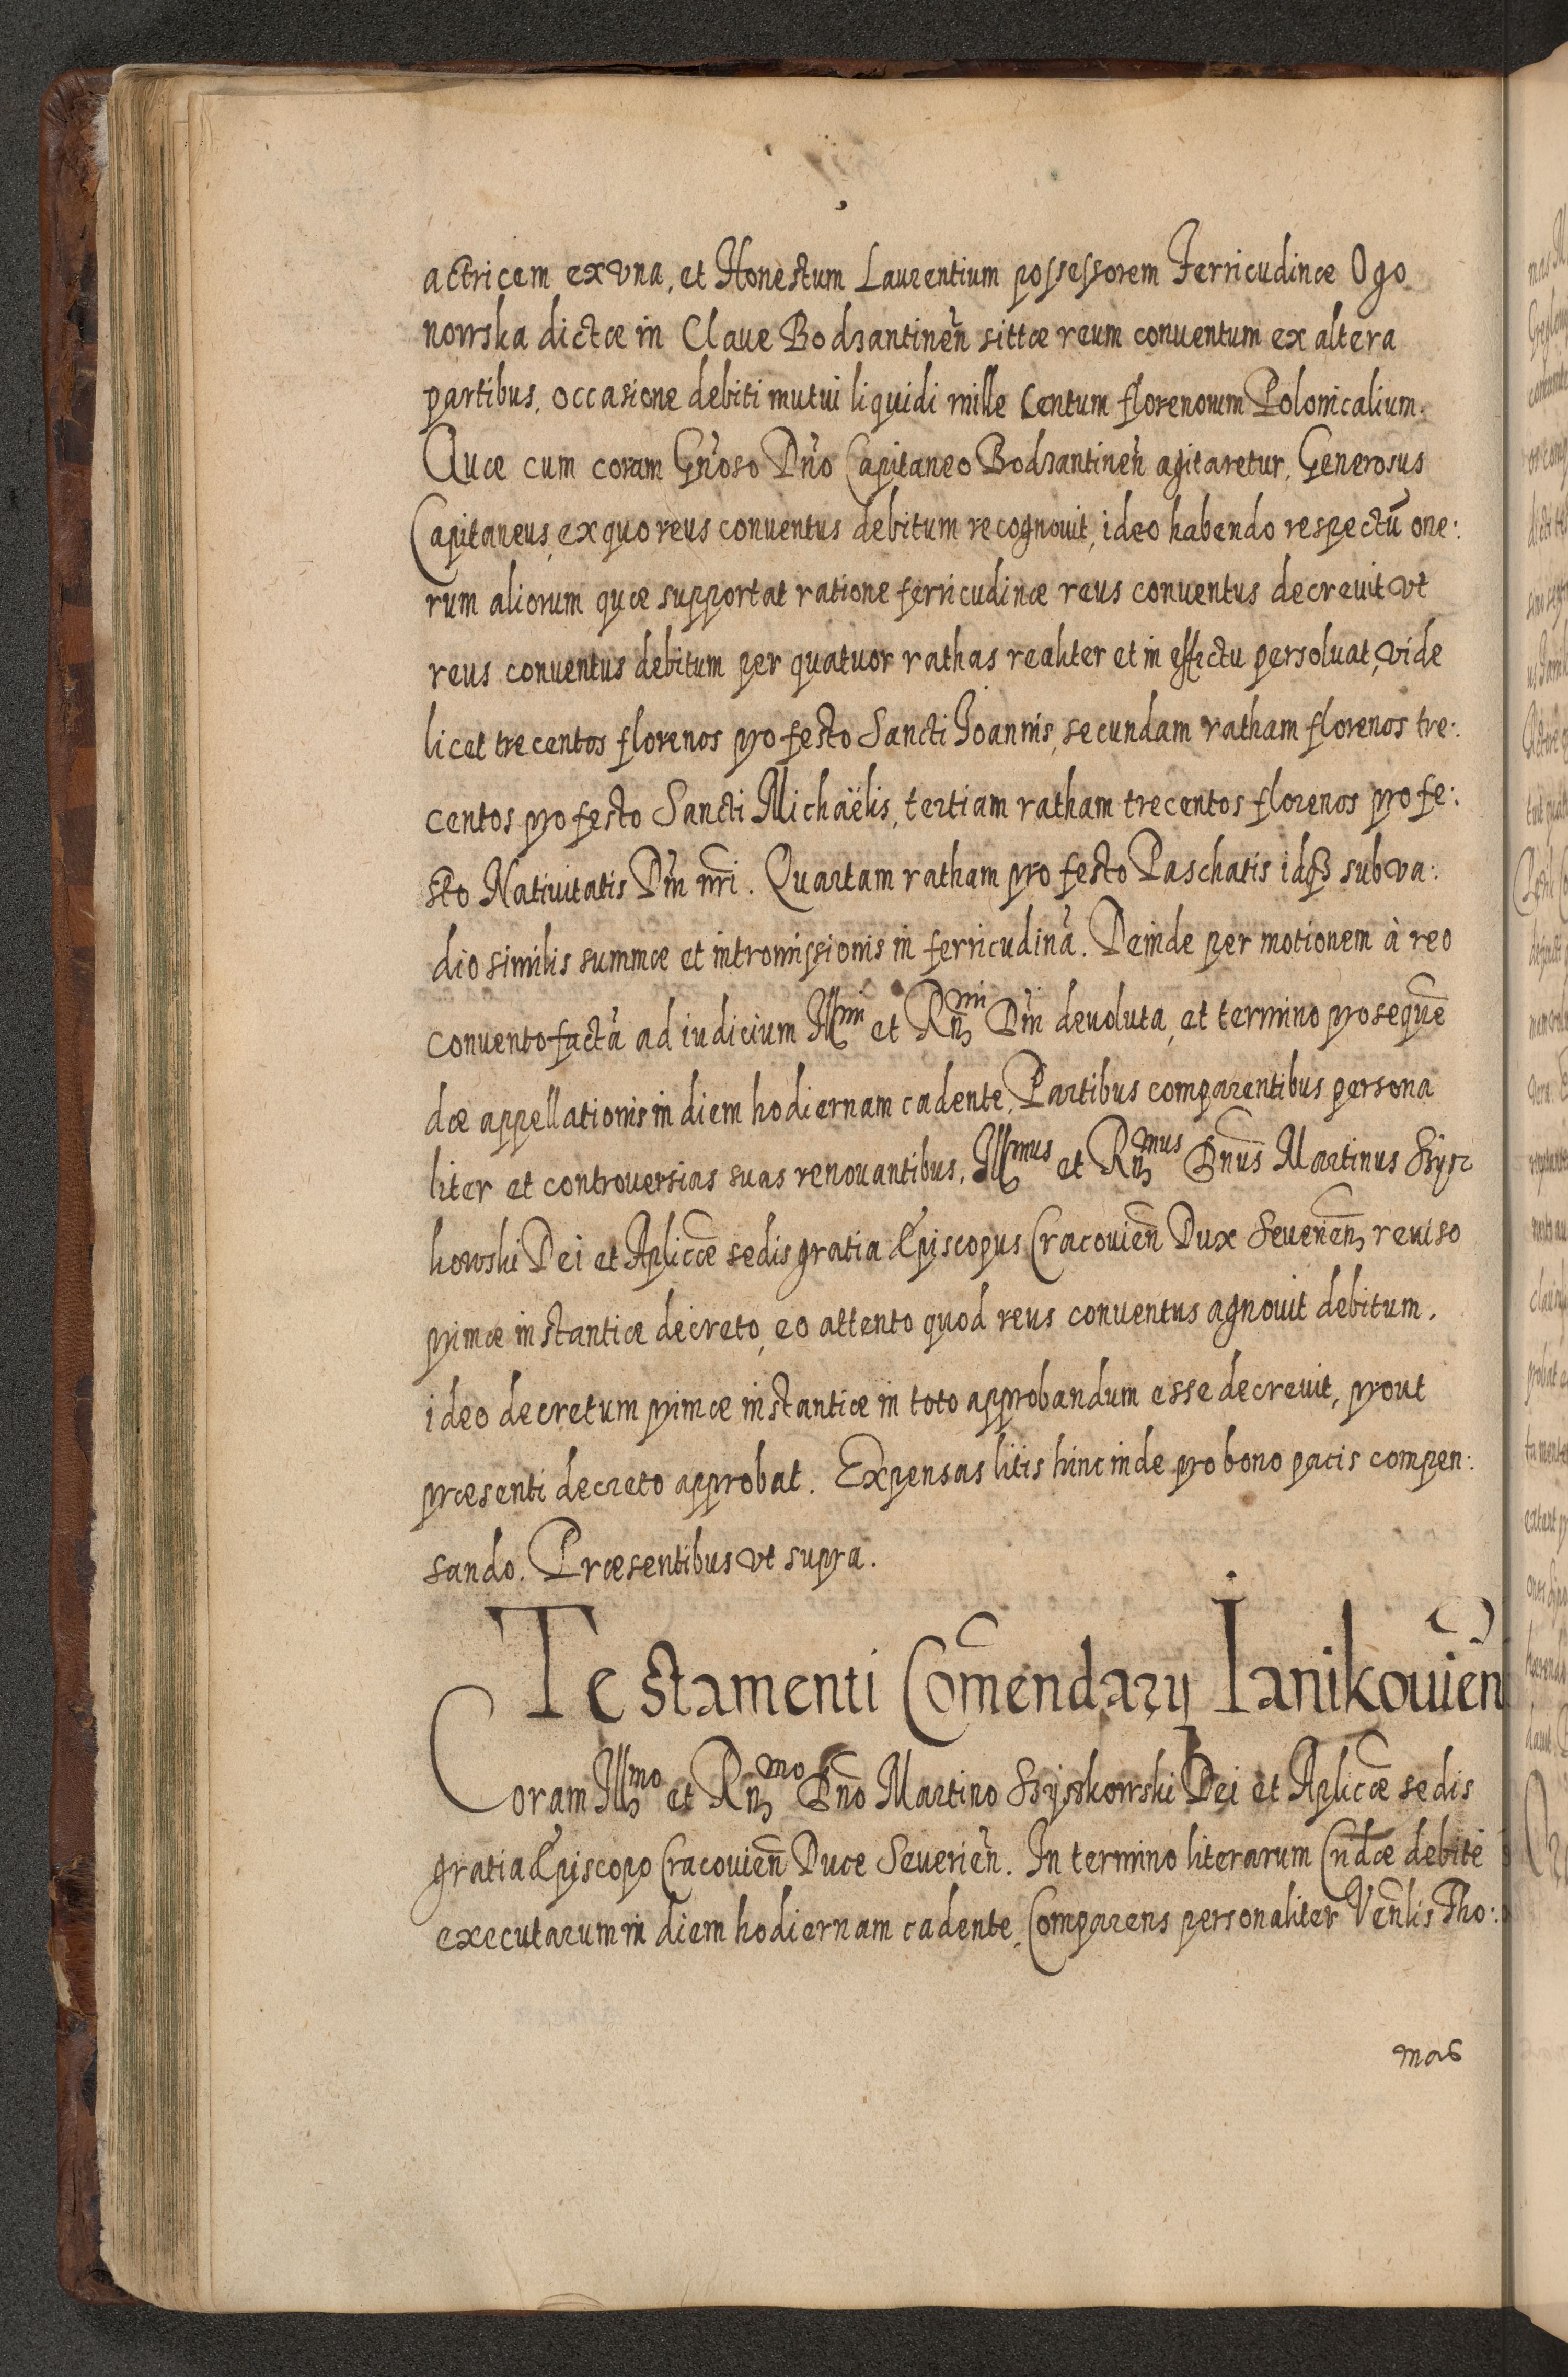 actricem ex vna, et Honestum Laurentium possessorem Ferricudinæ Ogo
nowska dictæ in Claue Bodzantineñ sittæ reum conuentum ex altera
partibus, occasione debiti mutui liquidi mille Centum florenorum Polonicalium.
Quæ cum coram Gñoso Dño Capitaneo Bodzantineñ agitaretur, Generosus
Capitaneus, ex quo reus conuentus debitum recognouit, ideo habendo respectū one:
rum aliorum quæ supportat ratione ferricudinæ reus conuentus decreuit vt
reus conuentus debitum per quatuor rathas realiter et in effectu persoluat, vide
licet trecentos florenos pro festo Sancti Joannis, secundam ratham florenos tre:
centos pro festo Sancti Michaëlis, tertiam ratham trecentos florenos pro fe:
sto Natiuitatis Dñi nri. Quartam ratham pro festo Paschatis idq3 sub va:
dio similis summæ et intromissionis in ferricudinā. Deinde per motionem à reo
conuento factā ad iudicium Illmi et Rñmi Dñi deuoluta, et termino prosequē
dæ appellationis in diem hodiernam cadente, Partibus comparentibus persona
liter et controuersias suas renouantibus, Illmus et Rñmus Dñus Martinus Szysz
kowski Dei et Aplicæ sedis gratia Episcopus Cracouieñ Dux Seuerieñ, reuiso
primæ instantiæ decreto, eo attento quod reus conuentus agnouit debitum.
ideo decretum primæ instantiæ in toto approbandum esse decreuit, prout
præsenti decreto approbat. Expensas litis hinc inde pro bono pacis compen:
sando. Præsentibus vt supra.
Testamenti Com̃endarij Ianikouieñ
Coram Illmo et Rñmo Dño Martino Szyszkowski Dei et Aplicæ sedis
gratia Episcopo Cracouieñ Duce Seuerieñ. In termino literarum Cñdæ debitè
executarum in diem hodiernam cadente, Comparens personaliter Veñlis Tho:
mas